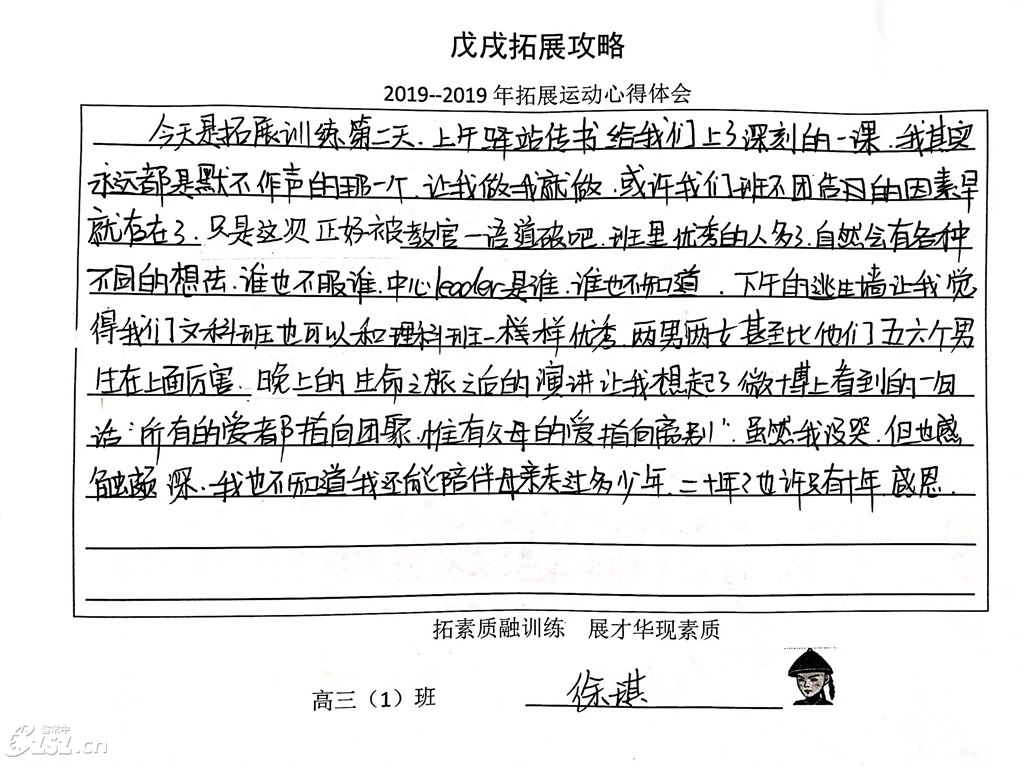 戊戌拓展攻略
2019--2019 年拓展运动心得体会
今天是拓展训练第二天.上午驿站传书给我们上了深刻的一课.我其实
永远都是默不作声的那一个.让我做我就做.或许我们班不团结的因素早
就存在了.只是这次正好被教官一语道破吧.班里优秀的人多了.自然会有各种
不同的想法.谁也不服谁.中心leader是谁.谁也不知道.下午的逃生墙让我觉
得我们文科班也可以和理科班一样样优秀.两男两女甚至比他们五六个男
生在上面厉害.晚上的生命之旅之后的演讲让我想起了微博上看到的一句
话:"所有的爱都指向团聚.惟有父母的爱指向离别".虽然我没哭.但也感
触颇深.我也不知道我还能陪伴母亲走过多少年.二十年?也许只有十年.感恩.
拓素质融训练 展才华现素质
高三（1）班 徐琪
.cn